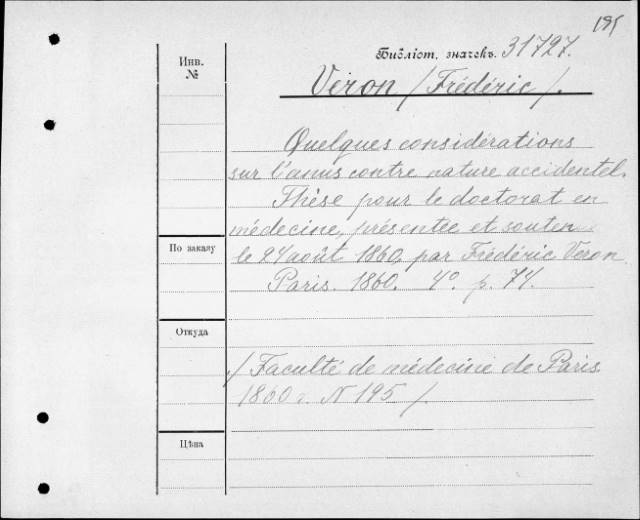 195
Библіот. значекъ. 31727.
Инв.
№
Véron / Frédéric /.
Quelques considérations
sur l'anus contre nature accidentel.
Thèse pour le doctorat en
médecine, présentée et souten
По заказу
le 24 août 1860, par Frédéric Véron
Paris. 1860. 4º. p. 74.
Откуда
/ Faculté de médecine de Paris
1860 г. N 195 /.
Цѣна